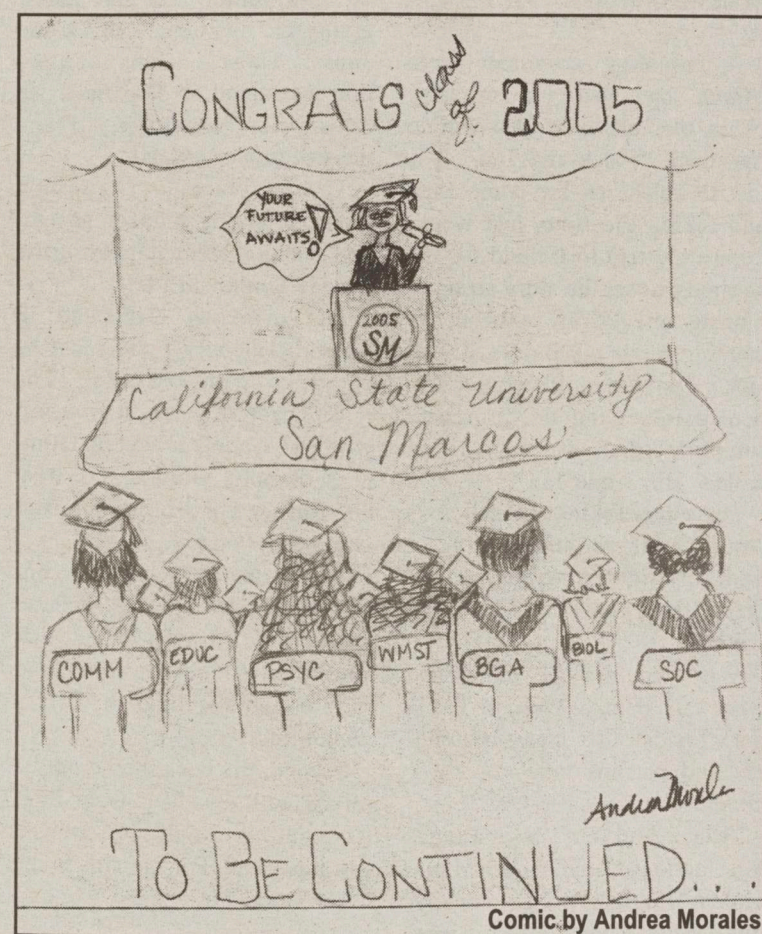 CONGRATS class of 2005
YOUR
FUTURE
AWAITS!
2005
SM
California State University
San Marcos
COMM
EDUC
PSYC
WMST
BGA
BIOL
SOC
Andrea Morales
TO BE CONTINUED...
Comic by Andrea Morales